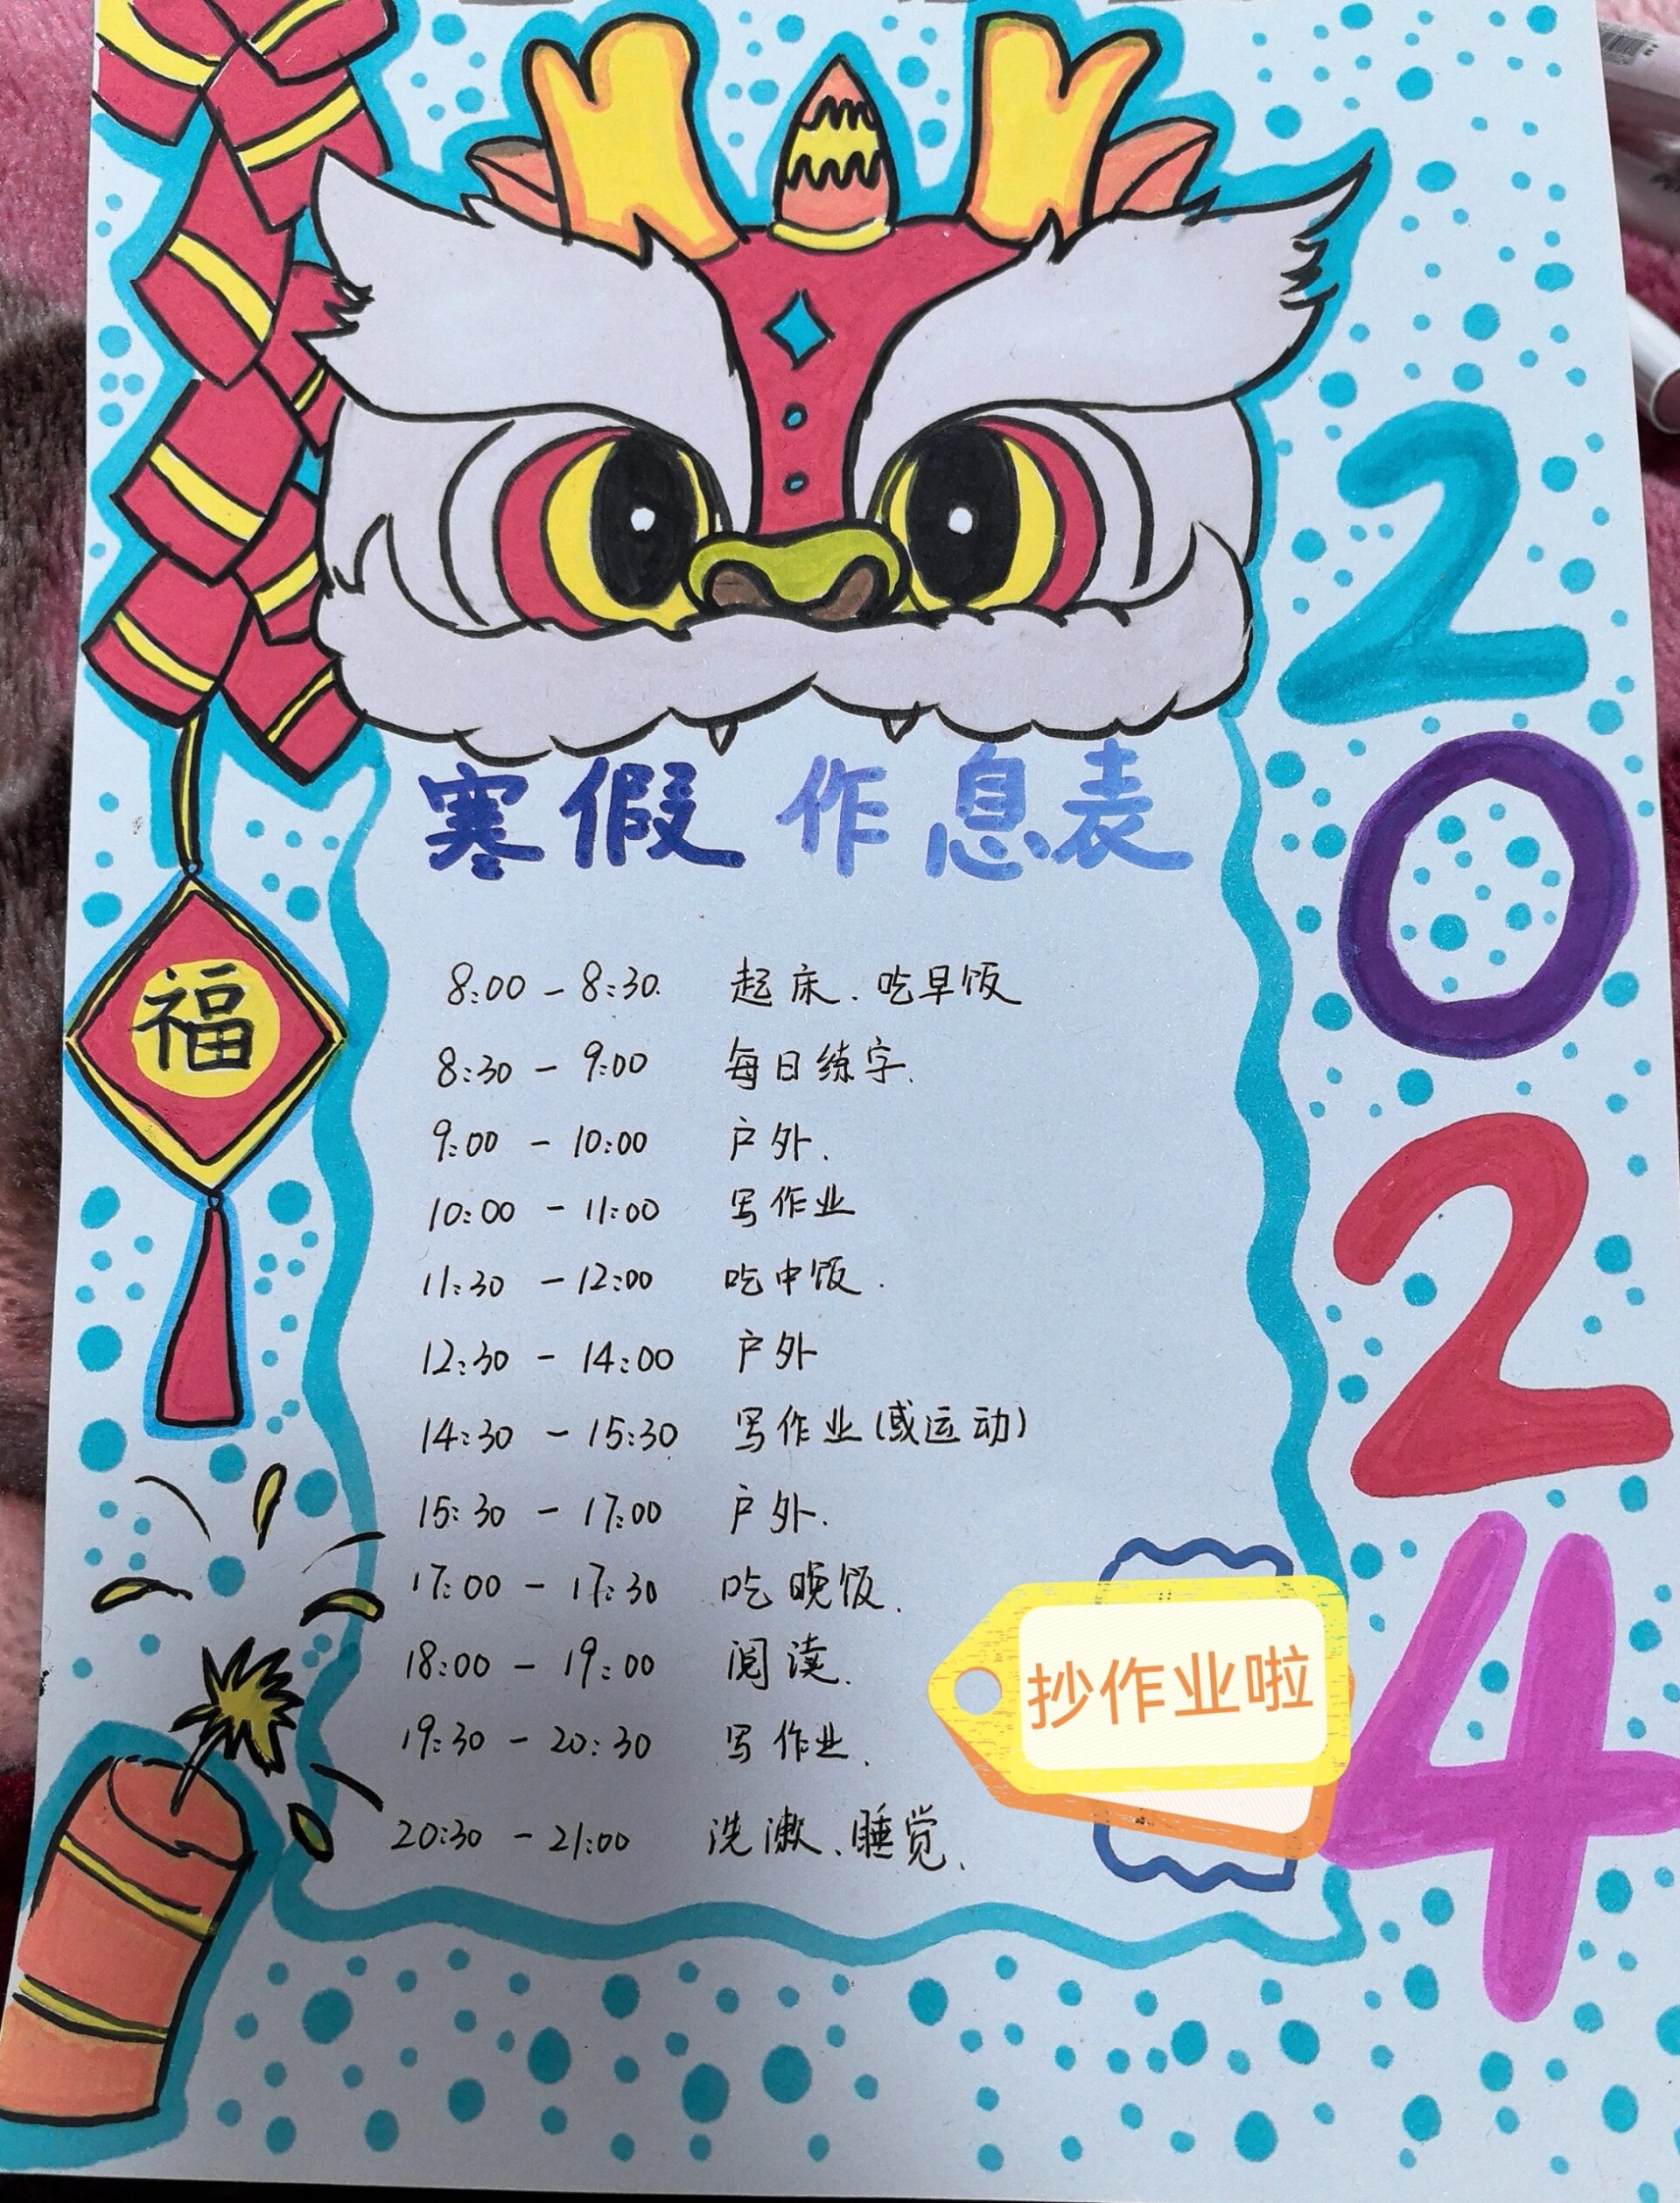 寒假作息表
8:00 - 8:30. 起床、吃早饭
8:30 - 9:00 每日练字.
9:00 - 10:00 户外.
10:00 - 11:00 写作业
11:30 - 12:00 吃中饭.
12:30 - 14:00 户外
14:30 - 15:30 写作业(或运动)
15:30 - 17:00 户外.
17:00 - 17:30 吃晚饭.
18:00 - 19:00 阅读.
19:30 - 20:30 写作业.
20:30 - 21:00 洗漱、睡觉.
福
抄作业啦
2024